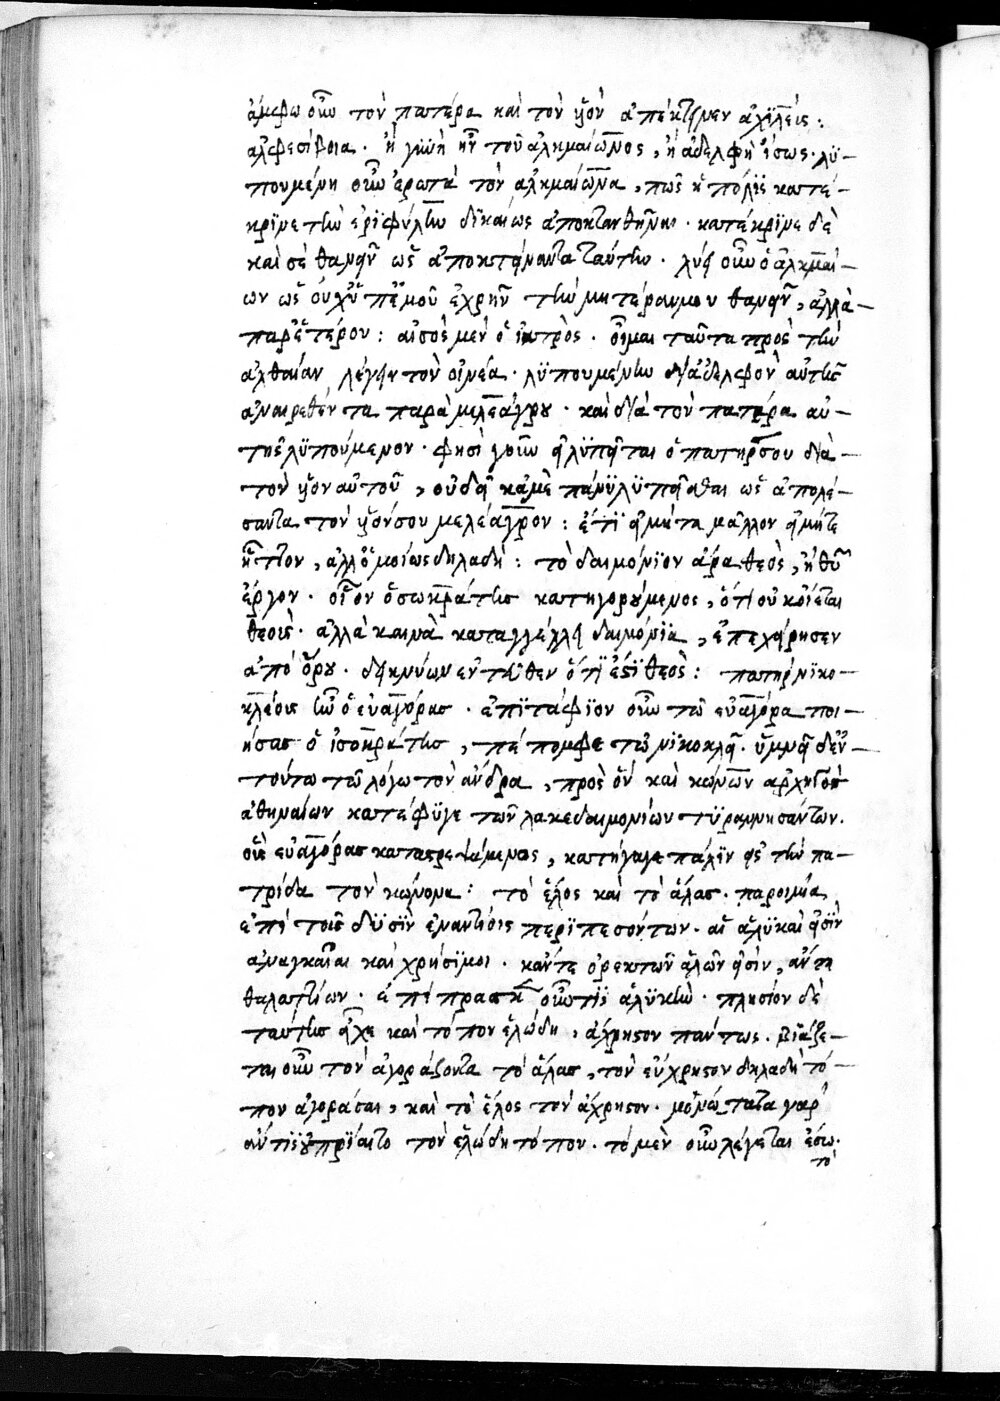 ἄμφω οὖν τὸν πατέρα καὶ τὸν υἱὸν ἀπέκτεινεν ἀχιλλεύς :
ἀλφεσίβοια · ἡ γυνὴ ἦν τοῦ ἀλκμαίωνος , ἢ ἀδελφὴ ἴσως · λυ-
πουμένη οὖν ἐρωτᾶ τὸν ἀλκμαίωνα , πῶς ἡ πόλις κατέ-
κρινε τὴν ἐριφύλην δικαίως ἀποκτανθῆναι · κατέκρινε δὲ
καὶ σὲ θανεῖν ὡς ἀποκτείναντα ταύτην · λύει οὖν ὁ ἀλκμαί-
ων ὡς οὐχ ὑπ' ἐμοῦ ἐχρῆν τὴν μητέρα μου θανεῖν , ἀλλὰ
παρ' ἑτέρου : μὲν ὁ ἰατρὸς · οἶμαι ταῦτα πρὸς τὴν
ἀλθαίαν λέγειν τὸν οἰνέα · λυπουμένην δι' ἀδελφὸν αὐτῆς
ἀναιρεθέντα παρὰ μελεάγρου · καὶ διὰ τὸν πατέρα αὐ-
τῆς λυπούμενον · φησὶ γοῦν εἰ λυπεῖται ὁ πατήρ σου διὰ
τὸν υἱὸν αὐτοῦ , οὐ δεῖ κἀμὲ πάνυ λυπεῖσθαι ὡς ἀπολέ-
σαντα τὸν υἱόν σου μελέαγρον : ἔτι εἰ μήτε μᾶλλον εἰ μήτε
ἧττον , ἀλλ' ὁμοίως δηλαδή : τὸ δαιμόνιον ἆρα θεὸς , ἢ θεοῦ
ἔργον · οἷον ὁ σωκράτης κατηγορούμενος , ὅτι οὐκ οἴεται
θεούς · ἀλλὰ καινὰ καταγγέλλει δαιμόνια , ἐπεχείρησεν
ἀπὸ ὅρου · δεικνύων ἐντεῦθεν ὅτι ἐστὶ θεὸς : πατὴρ νικο-
κλέους ἦν ὁ εὐαγόρας · ἐπιτάφιον οὖν τῶ εὐαγόρα ποι-
ήσας ὁ ἰσοκράτης , πέπομφε τῶ νικοκλεῖ · ὑμνεῖ δ' ἐν
τούτω τῶ λόγω τὸν ἄνδρα , πρὸς ὃν καὶ κώνων ἀρχηγὸς
ἀθηναίων κατέφυγε τῶν λακεδαιμονίων τυραννησάντων ·
οὓς εὐαγόρας καταστρεψάμενος , κατήγαγε πάλιν εἰς τὴν πα-
τρίδα τὸν κώνονα : τὸ ἕλος καὶ τὸ ἅλας · παροιμία
ἐπὶ τοῖς δυσὶν ἐναντίοις περιπεσόντων · αἱ ἁλυκαὶ εἰσὶν
ἀναγκαῖαι καὶ χρήσιμοι · κἄντε ὀρεκτῶν ἁλῶν εἰσὶν , ἄντε
θαλαττίων · ἐπίπρασκε οὖν τις ἁλυκὴν · πλησίον δὲ
ταύτης εἶχε καὶ τόπον ἑλώδη , ἄχρηστον πάντως · βιάζε-
ται οὖν τὸν ἀγοράζοντα τὸ ἅλας , τὸν εὔχρηστον δηλαδὴ τό-
πον ἀγοράσαι , καὶ τὸ ἕλος τὸν ἄχρηστον · μονώτατα γὰρ
ἄν τις οὐ πρίαιτο τὸν ἑλώδη τόπον · τὸ μὲν οὖν λέγεται ἔσω ·
τὸ